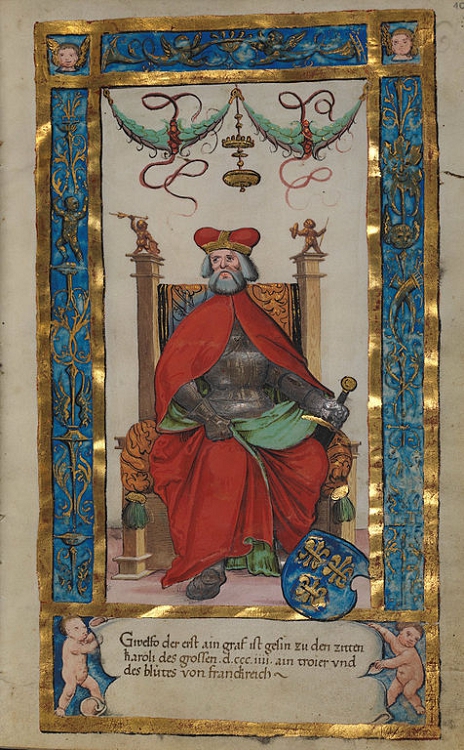 Gwelfo der erst ain graf ist gesin zu den zitten
karoli des grossen . d.ccc.iiii. ain troier vnd
des blutes von franckreich